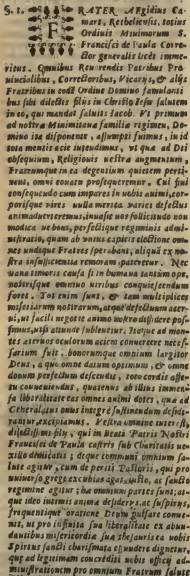 §. 1. FRATER AEgidius Ca-
mart, Retheliensis, totius
Ordinis Minimorum S.
Francisci de Paula Corre-
ctor generalis licèt imme-
ritus. Omnibus Reuerendis Patribus Pro
uincialibus, Correctoribus, Vicarijs, & alijs
Fratribus in eodē Ordine Domino famulanti
bus sibi dilectis filijs in Christo Iesu salutem
in eo, qui mandat salutis Iacob. Vt primum
ad nostræ Minimitanæ familiæ regimen, Do-
mino ita disponente, assumpti fuimus, in id
tota mentis acie intendimus, vt quæ ad Dei
obsequium, Religionis nostræ augmentum,
Fratrumque in ea degentium quietem perti-
nent, omni conatu prosequeremur. Cui sanè
consequendo cum impares in nobis animi, cor-
porisque vires nulla merita varios defectus
animaduerteremus, inuasit nos sollicitudo non
modica ne boni, perfectique regiminis admi-
nistratio, quam ab vnius capitis electione om-
nes vndique Fratres sperabant, aliqua ex no-
stra insufficientia remoram pateretur. Nec
vana timoris causa si in humana tantùm ope,
nostrisque omnino viribus conquiescendum
foret. Tot enim sunt, & tam multiplices
miseriarum nostrarum, atque defectuum acer-
ui, vt facilè negetis animo nostro dissidere pos-
simus, nisi aliunde subleuetur. Itaque ad mon-
tes æternos oculorum aciem conuertere neces-
sarium fuit, bonorumque omnium largitor
Deus, à quo omne datum optimum, & omne
donum perfectum descendit, toto cordis affe-
ctu conueniendus, quatenus ab illius immen-
sa liberalitate eas omnes animi dotes, quæ ad
Generalatus onus integrè sustinendum deside-
rantur, excipiamus. Vestra omnium interest,
dilectissimi filij, qui in Beati Patris Nostri
Francisci de Paula castris sub Charitatis ve-
xillo dimicatis; deque communi omnium sa-
lute agitur, cum de periti Pastoris, qui pro
vniuerso grege excubias agat, iusto, ac sancto
regimine agitur: hæ omnium partes sunt; at-
que ideo intimis animæ desiderijs, ac suspirijs,
frequentique oratione Deum pulsare conue-
nit, vt pro infinita sua liberalitate ex abun-
dantibus misericordiæ suæ thesauris ea nobis
Spiritus sancti charismata effundere dignetur,
quæ ad legitimam concrediti nobis officij ad-
ministrationem pro omnium Fratrum salute